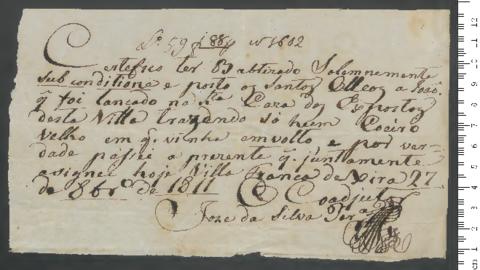 Certefico ter Baptizado Solemnemente
sub conditione e posto os Santos Olleos a João,
q foi lancado na Caza dos Expostos
desta Villa trazendo só hum Coeiro
Velho em q. vinha emvolto e por ver-
dade passei a prezente q. juntamente
asignei hoje Villa Franca de Xira 27
de 8br.o de 1811
O Coadjut.or
Joze da Silva
cm 1 2 3 4 5 6 7 8 9 10 11